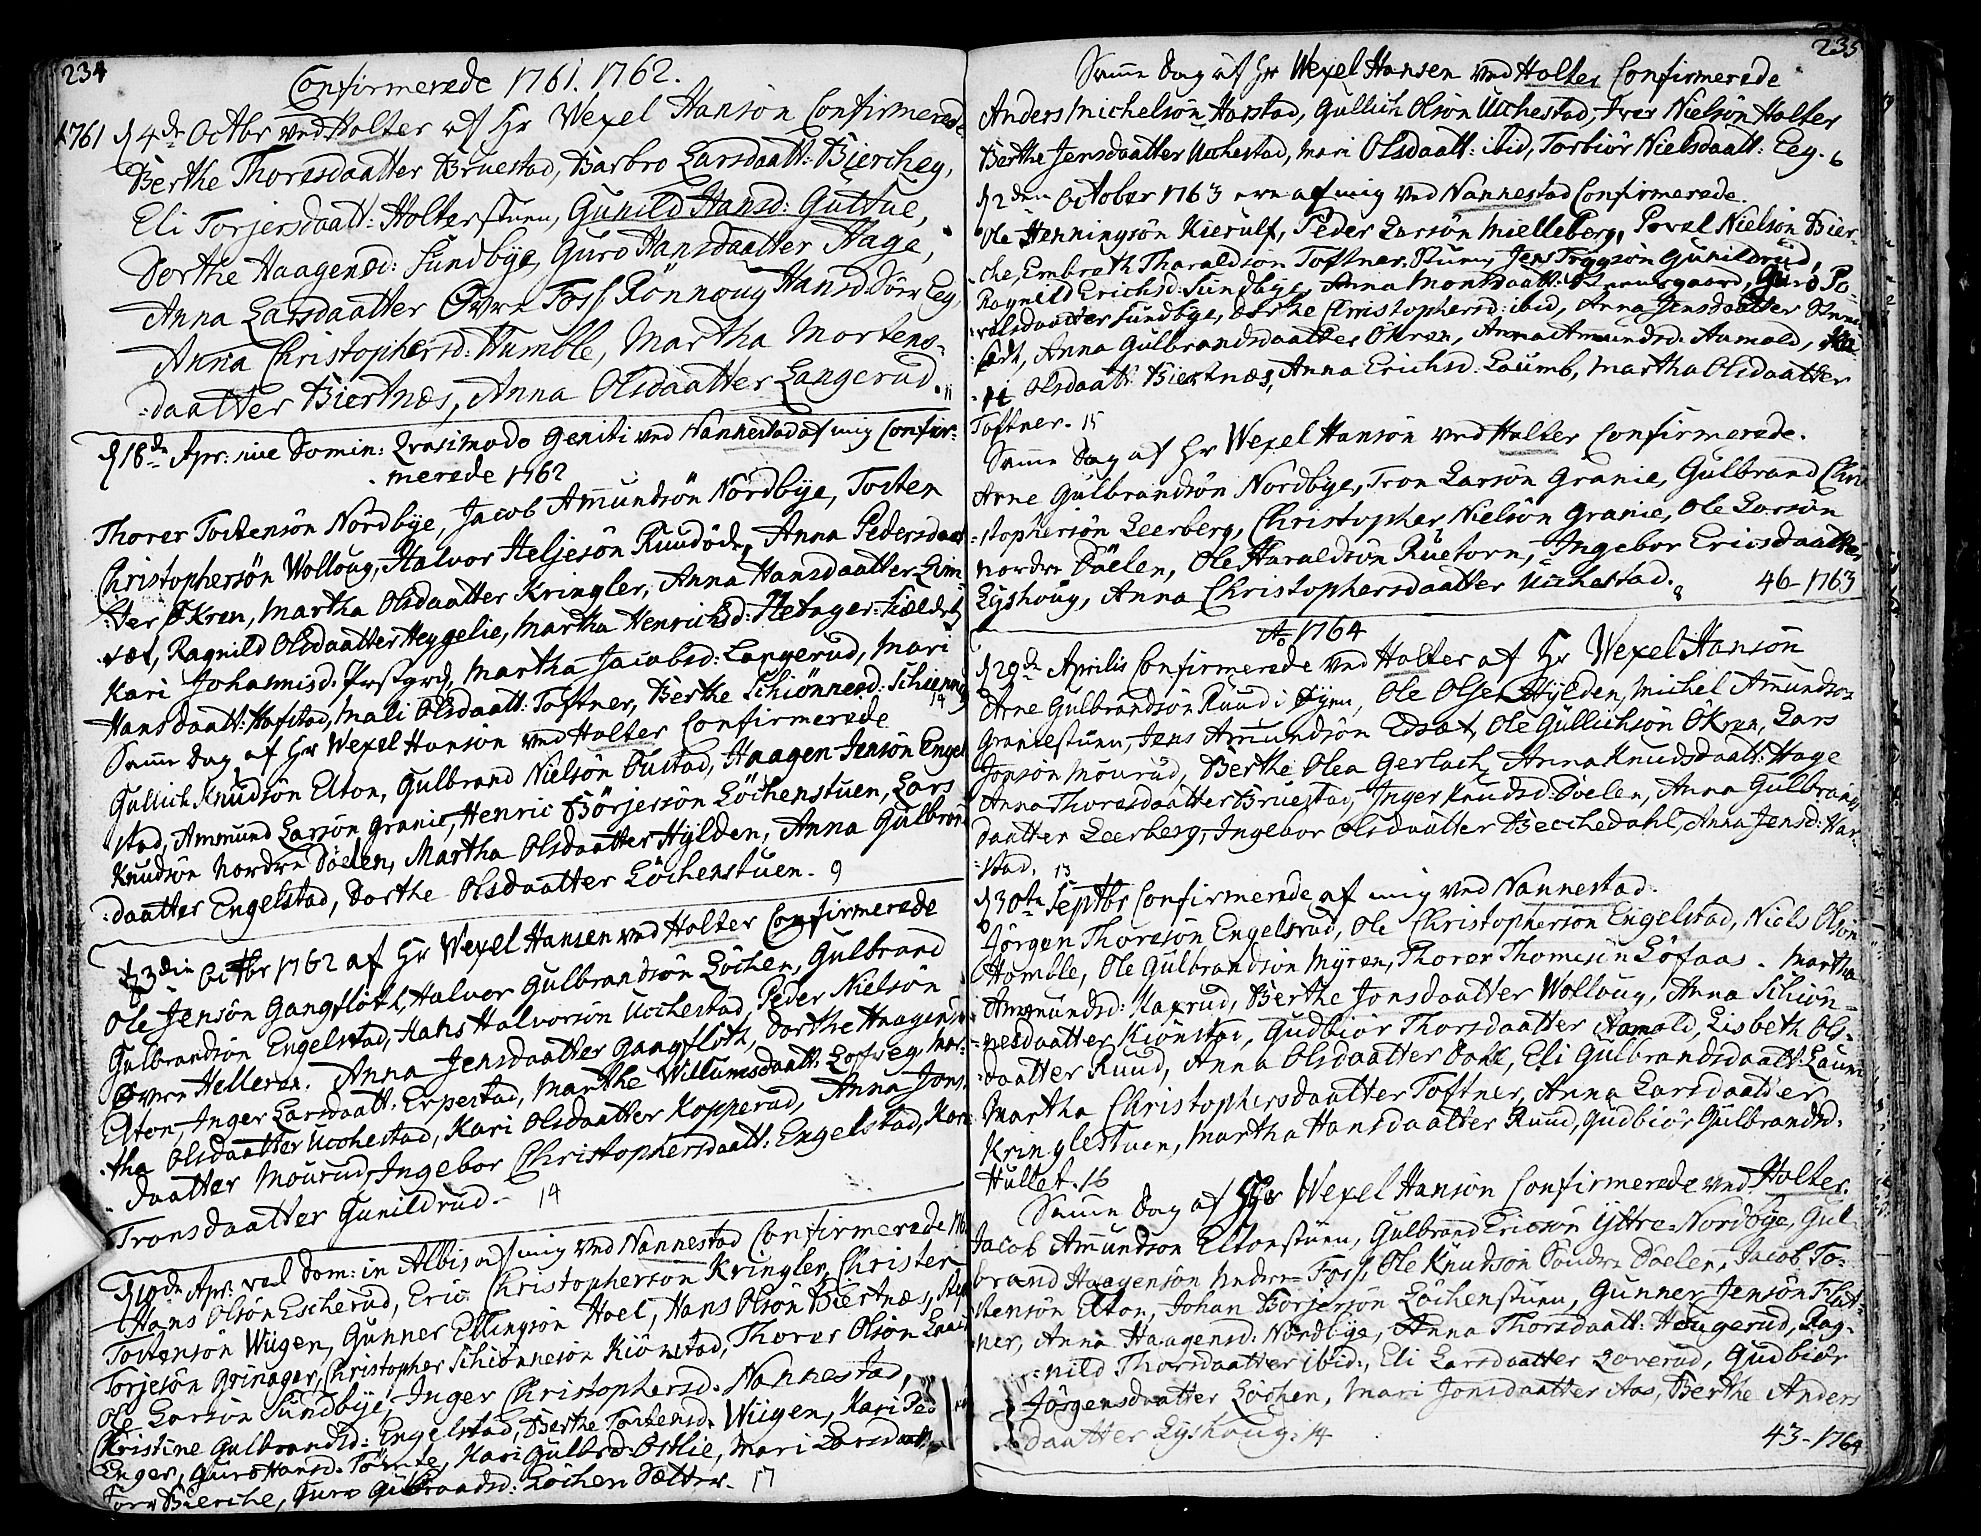 234
Confirmerede 1761. 1762.
1761 d 4de Octbr ved Holter af Hr Wexel Hanson Confirmerede
Berthe Thoresdaatter Bruestad, Barbro Larsdaatt: Bierchey,
Eli Torjersdaatt: Holterstuen, Gunild Hansd: Guttue,
Dorthe Haagensd: Sundbye, Guro Hansdaatter Hage,
Anna Larsdaatter Øvre Foss, Rönnoug Hansd Eeg,
Anna Christophersd: Humble, Martha Mortens-
:daatter Biertnæs, Anna Olsdaatter Langerud. 11
d 18de Apr: sive Domin: Qvasimodo Geniti ved Nannestad af mig Confir-
merede 1762
Thorer Tostensön Nordbye, Jacob Amundsön Nordbye, Tosten
Christophersön Wolloug, Halvor Heljesön Ruudöde, Anna Pedersdaat
:ter Økren, Martha Olsdaatter Kringler, Anna Hansdaatter
Ragnild Olsdaatter Heggelie, Martha Henrichsd:
Kari Johannisd: Præstgrd, Martha Jacobsd: Langerud, Mari
Hansdaatt: Hofstad, Mali Olsdaatt: Toftner, Berthe Schiönnesd: 14
Samme dag af Hr Wexel Hanson ved Holter Confirmerede
Gullich Knudsön Elton, Gulbrand Nielsön Bustad, Haagen Jensön Engel
stad, Ammund Larsön Granie, Henric Börjersön Löchenstuen, Lars
Knudsön Nordre Döelen, Martha Olsdaatter Hylden, Anna Gulbrans
:daatter Engelstad, Dorthe Olsdaatter Löchenstuen. 9
d 3die Octbr 1762 af Hr Wexel Hansen ved Holter Confirmerede
Ole Jensön Gangfloth, Halvor Gulbrandsön Löchen, Gulbrand
Gulbrandsön Engelstad, Hans Halvorsön Ucchestad, Peder Nielsön
Øvre Helleren. Anna Jensdaatter Gangfloth, Dorthe Haagensd
Elton, Inger Larsdaatt: Erpestad, Marthe Willumsdaatt: Lofveg, Mar-
:tha Olsdaatter Ucchestad, Kari Olsdaatter Kopperud, Anna Jons
daatter Mourud, Ingebor Christophersdaatt: Engelstad, Kari
Tronsdaatter Gunildrud. 14
d Apr: vel Dom: in Albis af mig ved Nannestad Confirmerede
Hans Olsön Escherud, Eric Christophersön Kringler, Christen
Tostensön Wiigen, Gunner Ellingsön Hoel, Hans Olsön Biertnæs,
Torjesön Grinager, Christopher Schiönnesön Kiönstad, Thorer Olsön
Ole Larsön Sundbye, Inger Christophersd: Nannestad,
Christine Gulbrandsd: Engelstad, Berthe Tostensd: Wiigen, Kari
Enger, Guro Hansd: Tömte, Kari Gulbrsd: Östlie, Mari Larsdaatt
Bierche, Guro Gulbrandsd: Löchen Sætter. 17
235
Samme dag af Hr Wexel Hansen ved Holter Confirmerede
Anders Michelsön Harstad, Gullich Olsön Ucchestad, Iver Nielsön Holter
Berthe Jensdaatter Ucchestad, Mari Olsdaatt: ibid, Torbiör Nielsdaatt: Eeg. 6
d 2den October 1763 ere af mig ved Nannestad Confirmerede.
Ole Henningsön Kierulf, Peder Larsön Mielleberg, Povel Nielsön Bier-
che, Embrcth Tharaldson Toftner, Jens Gunildrud,
Ragnild Erichsd: Sundbye, Anna Guro Po-
:velsdaatter Sundbye, Dorthe Christophersd: ibid, Anna Jensdaatter
Anna Gulbrandsdaatter Økren, Anna Amundsd: Aamold,
Olsdaatt: Biertnæs, Anna Erichsd: Laumb, Martha Olsdaatter
Toftner. 15
Samme dag af Hr Wexel Hanson ved Holter Confirmerede.
Arne Gulbrandsön Nordbye, Tron Larsön Granie, Gulbrand Chri
:stophersön Leerberg, Christopher Nielsön Granie, Ole Larsön
Nordre Döelen, Ole Haraldsön Ruetorn, Ingebor Ericsdaatter
Lyshoug, Anna Christophersdaatter Ucchestad. 8 46-1763
Ao 1764
d 29de Aprilis Confirmerede ved Holter af Hr Wexel Hanson
Arne Gulbrandsön Ruud i Øyen, Ole Olsen Hylden, Michel Amundsön
Graniestuen, Jens Amundsön Edsæt, Ole Gullichsön Økren, Lars
Jonsön Mourud, Berthe Olea Gerlach, Anna Knudsdaatt: Hage
Anna Thoresdaatter Bruestad, Inger Knudsd: Döelen, Anna Gulbrands
daatter Leerberg, Ingebor Olsdaatter Becchedahl, Anna Jensd: Har-
:stad. 13
d 30te Septbr Confirmerede af mig ved Nannestad.
Jörgen Thoresön Engelsrud, Ole Christophersön Engelstad, Niels Olsön
Homble, Ole Gulbrandsön Myren, Thorer Thomesön Löfaas. Martha
Ammundsd: Kaxrud, Berthe Jonsdaatter Wolloug, Anna Schiön-
:nesdaatter Kiönstad, Gudbiör Thorsdaatter Aamold, Lisbeth Ols-
:daatter Ruud, Anna Olsdaatter Dahl, Eli Gulbrandsdaatt: Laum
Martha Christophersdaatter Toftner, Anna Larsdaatter
Kringlestuen, Martha Hansdaatter Ruud, Gudbiör Gulbrandsd.
Hullet. 16
Samme dag af Hr Wexel Hanson Confirmerede ved Holter.
Jacob Amundsön Eltonstuen, Gulbrand Ericsön Yttre-Nordbye, Gul
brand Haagensön Nedre-Foss, Ole Knudsön Söndre Döelen, Jacob To-
:stensön Elton, Johan Börjersön Löchenstuen, Gunner Jensön
ner, Anna Haagensd: Nordbye, Anna Thorsdaatt: Haugerud, Rag-
:nild Thorsdaatter ibid:, Eli Larsdaatter Loverud, Gudbiör
Jörgensdaatter Löchen, Mari Jonsdaatter Aas, Berthe Anders
daatter Lyshoug: 14
43-1764